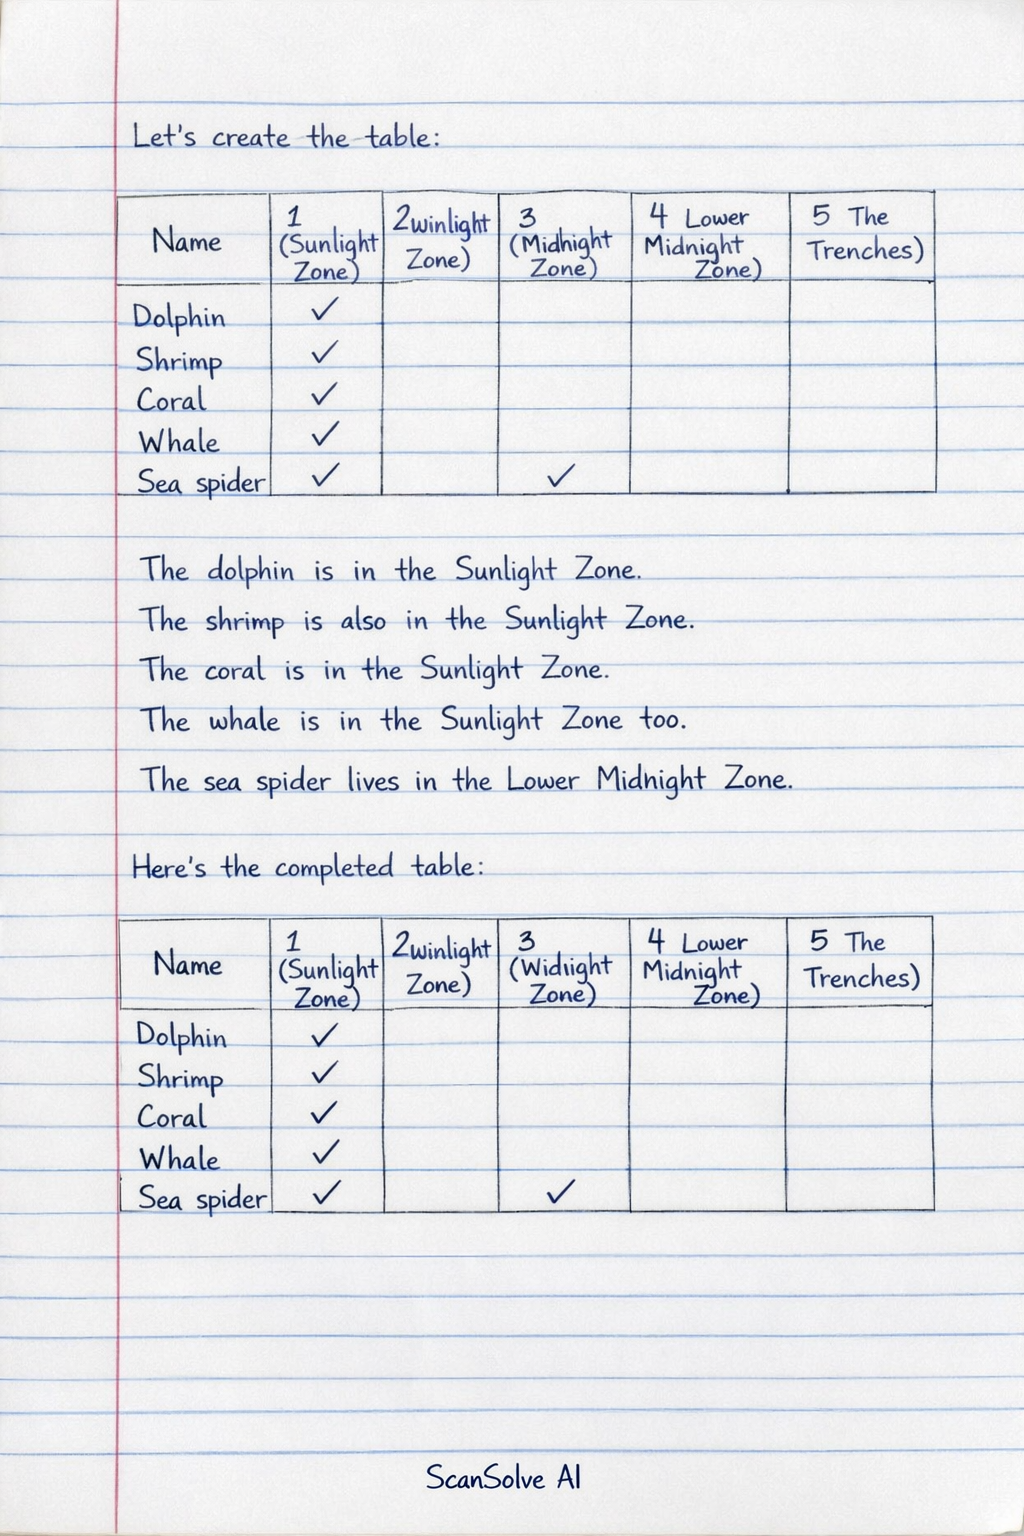 Let's create the table:
Name
1
(Sunlight
Zone)
2winlight
Zone)
3
(Midnight
Zone)
4 Lower
Midnight
Zone)
5 The
Trenches)
Dolphin ✓
Shrimp ✓
Coral ✓
Whale ✓
Sea spider ✓ ✓
The dolphin is in the Sunlight Zone.
The shrimp is also in the Sunlight Zone.
The coral is in the Sunlight Zone.
The whale is in the Sunlight Zone too.
The sea spider lives in the Lower Midnight Zone.
Here's the completed table:
Name
1
(Sunlight
Zone)
2winlight
Zone)
3
(Widıight
Zone)
4 Lower
Midnight
Zone)
5 The
Trenches)
Dolphin ✓
Shrimp ✓
Coral ✓
Whale ✓
Sea spider ✓ ✓
ScanSolve AI